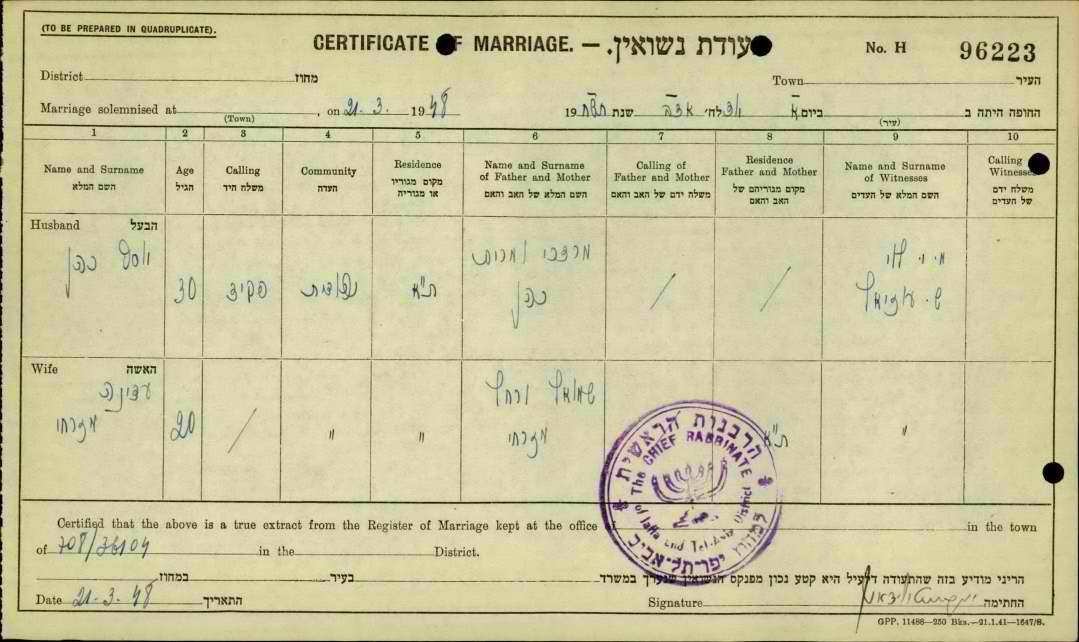 (TO BE PREPARED IN QUADRUPLICATE).
CERTIFICATE OF MARRIAGE. — תעודת נשואין.
No. H 96223
District מחוז Town העיר
Marriage solemnised at , on 21.3. 1948 החופה היתה ב ביום א שנת תש"ח 19
(Town) (עיר)
1 2 3 4 5 6 7 8 9 10
Name and Surname Age Calling Community Residence Name and Surname of Father and Mother Calling of Father and Mother Residence Father and Mother Name and Surname of Witnesses Calling Witnesses
השם המלא הגיל משלח היד העדה מקום מגוריו או מגוריה השם המלא של האב והאם משלח ידם של האב והאם מקום מגוריהם של האב והאם השם המלא של העדים משלח ידם של העדים
Husband הבעל
יוסף כהן 30 פקיד ת"א מרדכי כהן / / ש. עזיאל
Wife האשה
עדינה מזרחי 20 / " " שמואל ורחל מזרחי ת"א "
הרבנות הראשית
The CHIEF RABBINATE
of Jaffa and Tel-Aviv District
למחוז יפו-תל-אביב
Certified that the above is a true extract from the Register of Marriage kept at the office of in the town
of 708/38104 in the District.
הריני מודיע בזה שהתעודה דלעיל היא קטע נכון מפנקס הנשואין שנערך במשרד בעיר במחוז
Date 21.3.48 התאריך Signature החתימה
GPP. 11488—250 Bks.—21.1.41—1647/S.